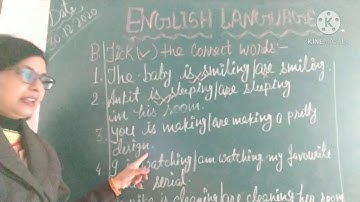 Date
10.12.2020
ENGLISH LANGUAGE
KINEMASTER
B) Tick (✓) the correct words:-
1. The baby is smiling/are smiling.
2. Ankit is sleeping/are sleeping
in his room.
3. you is making/are making a pretty
design.
4. I watching/am watching my favourite
serial.
is cleaning/are cleaning her room